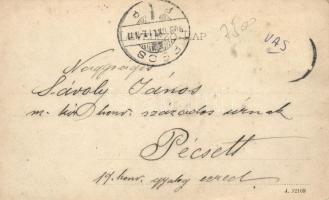 LAP
3500
VAS
PÉCS
Nagyságos
Sávoly János
m. kir. honv. százados urnak
Pécsett
19. honv. gyalog ezred
A. J2108